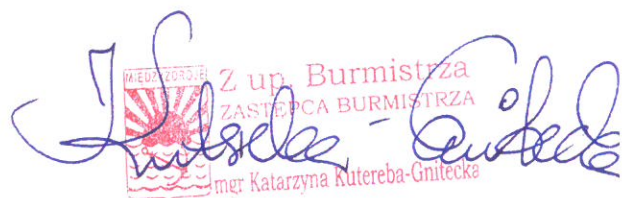 MIĘDZYZDROJE
Z up. Burmistrza
ZASTĘPCA BURMISTRZA
mgr Katarzyna Kutereba-Gnitecka